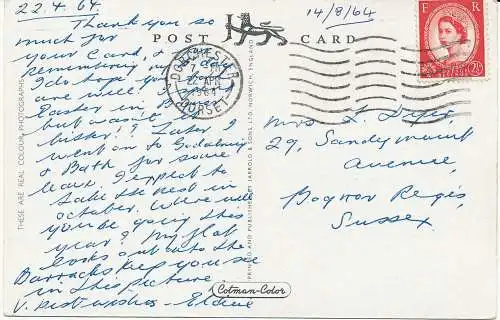 22.4.64.
Thank you so
much for
your card, & for
remembering my day
I do hope you both
are well. I spent
Easter in Bognor
but wasn't it
bitter? Later I
went on to Godalming
& Bath for some
leave. I expect to
take the rest in
October. Where will
you be going this
year? My flat
looks out onto the
Barracks keep you see
in this picture.
V. best wishes – Eldene
POST CARD
14/8/64
DORCHESTER
22 APR
1964
DORSET
E R
2½ 2½
Mrs L.
29, Sandymount
Avenue,
Bognor Regis,
Sussex
THESE ARE REAL COLOUR PHOTOGRAPHS
PRINTED AND PUBLISHED BY JARROLD & SONS LTD, NORWICH, ENGLAND
Cotman-Color